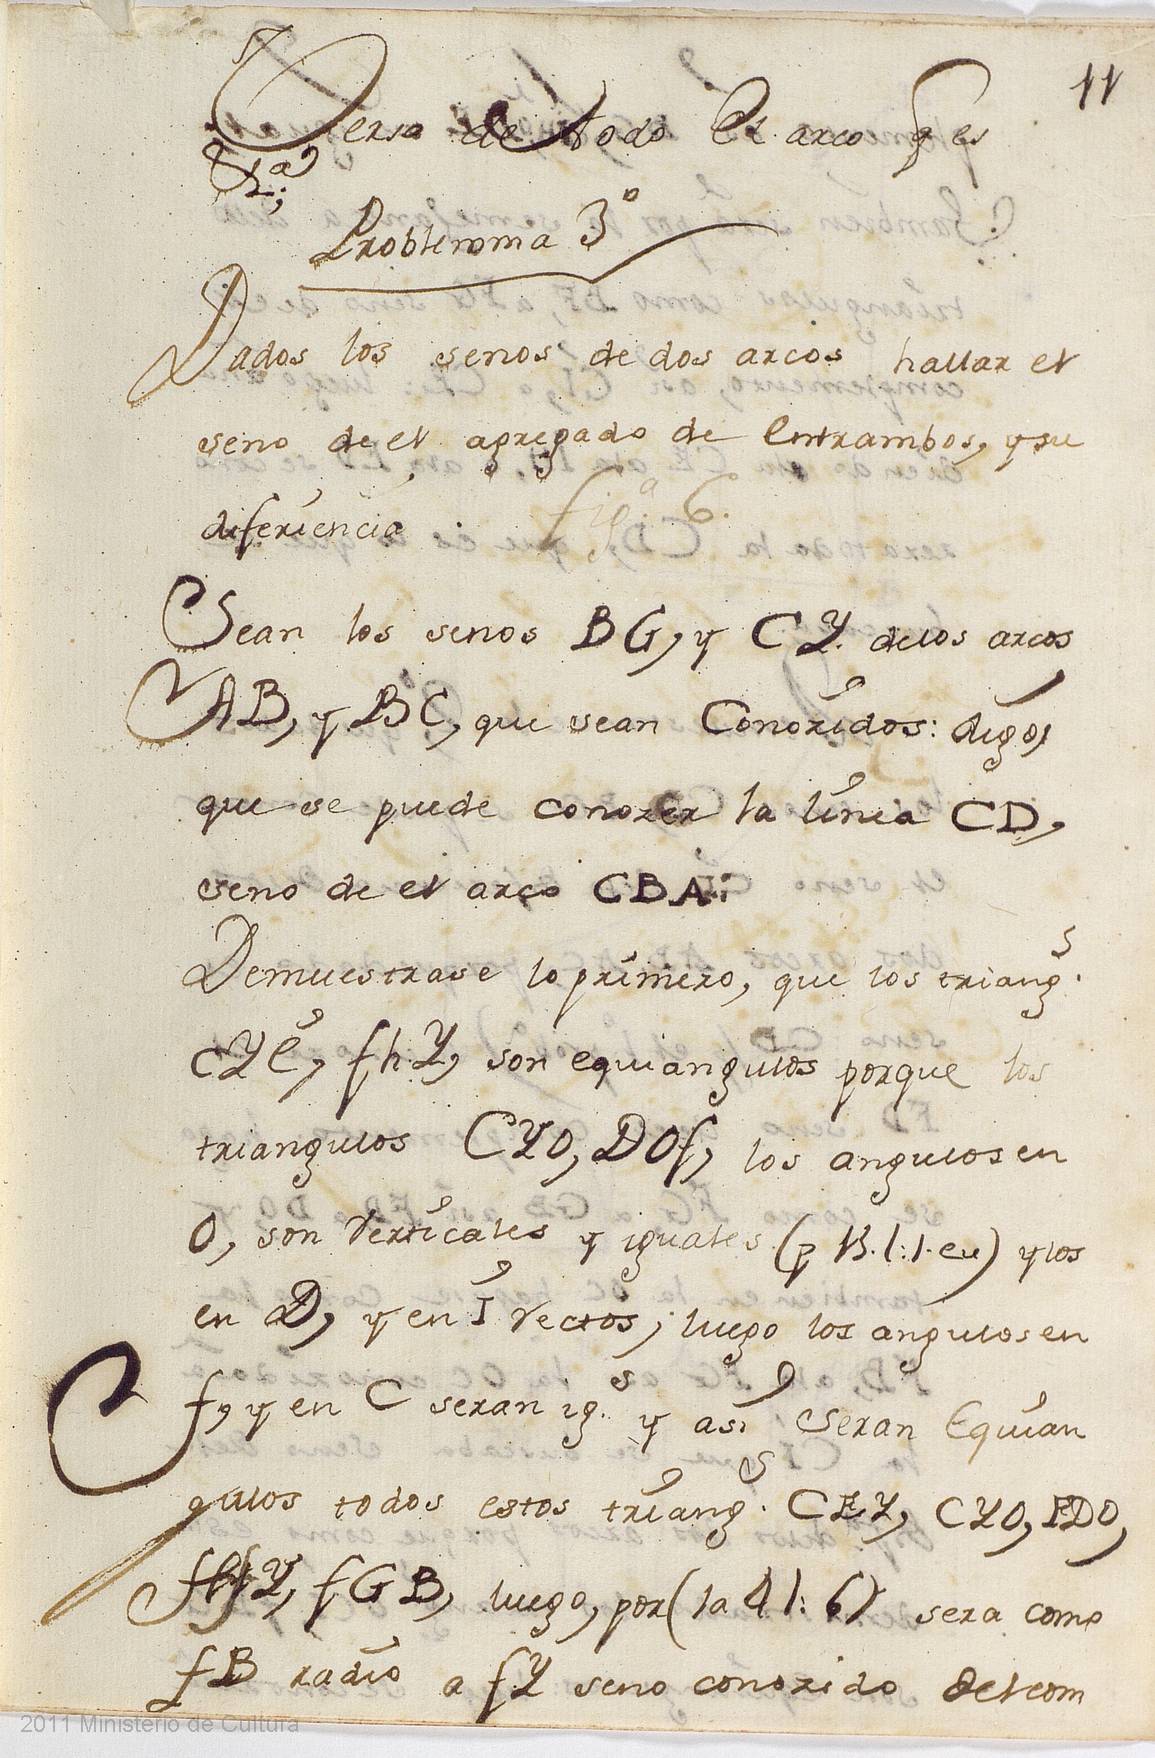 11
Versa de todo el arco q es
Problemma 3º
Dados los senos de dos arcos hallar el
seno de el agregado de entrambos, y su
diferiencia figª. 6.
Sean los senos BG, y CY. de los arcos
AB, y BC, que sean Conozidos: digo,
que se puede conozer la linia CD,
seno de el arco CBA:
Demuestrase lo primero, que los triangs.
CYE, fhY, son equiangulos porque los
triangulos CYO, DOf, los angulos en
O, son Verticales y iguales (p 15. l: 1. eu) y los
en D, y en I rectos; luego los angulos en
f, y en C seran igs. y asi Seran Equian
gulos todos estos triangs. CEY, CYO, FDO,
fhY, fGB, luego, por (la 4 l: 6) sera como
fB radio a fY seno conozido del com
2011 Ministerio de Cultura